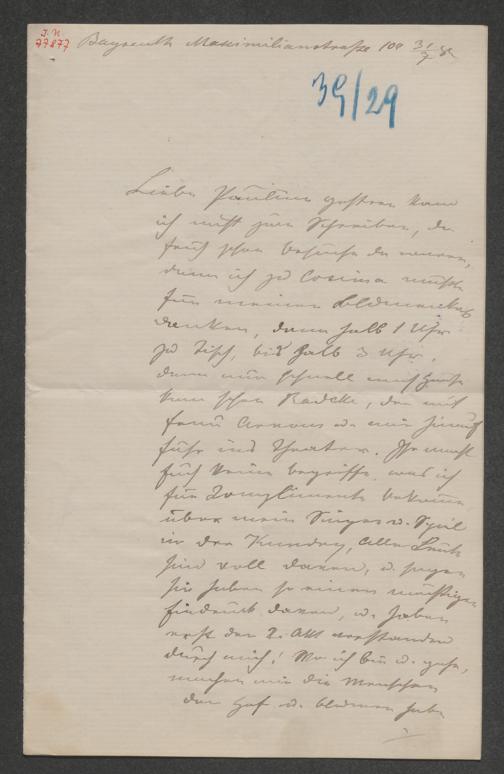 I.N.
77877
Bayreuth Maximilianstraße 108 31/7 82
39/29
Liebe Pauline gestern kam
ich nicht zum Schreiben, da
früh schon Besuche da waren,
dann ich zu Cosima mußte
für meinen Blumenkorb
danken, dann halb 1 Uhr
zu Tisch, bis halb 3 Uhr,
dann nur schnell nach Hause
kam schon Radcke, der mit
Frau u. mir hinauf
fuhr ins Theater. Ihr macht
Euch keine Begriffe, was ich
für Complimente bekomme
über mein Singen u. Spiel
in der Kundry, alle Leute
sind voll davon, u. sagen
sie haben so einen mächtigen
Eindruck davon, u. haben
erst den 2. Akt verstanden
durch mich! Wo ich bin u. gehe,
machen mir die Menschen
den Hof u. Blumen habe